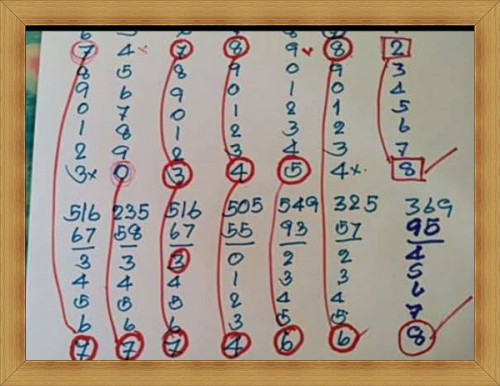 7 4x 7 8 9x 8 2
8 5 8 9 0 9 3
9 6 9 0 1 0 4
0 7 0 1 2 1 5
1 8 1 2 3 2 6
2 9 2 3 4 3 7
3x 0 3 4 5 4x 8
516 235 516 505 549 325 369
67 58 67 55 93 57 95
3 3 3 0 2 2 4
4 4 4 1 3 3 5
5 5 5 2 4 4 6
6 6 6 3 5 5 7
7 7 7 4 6 6 8